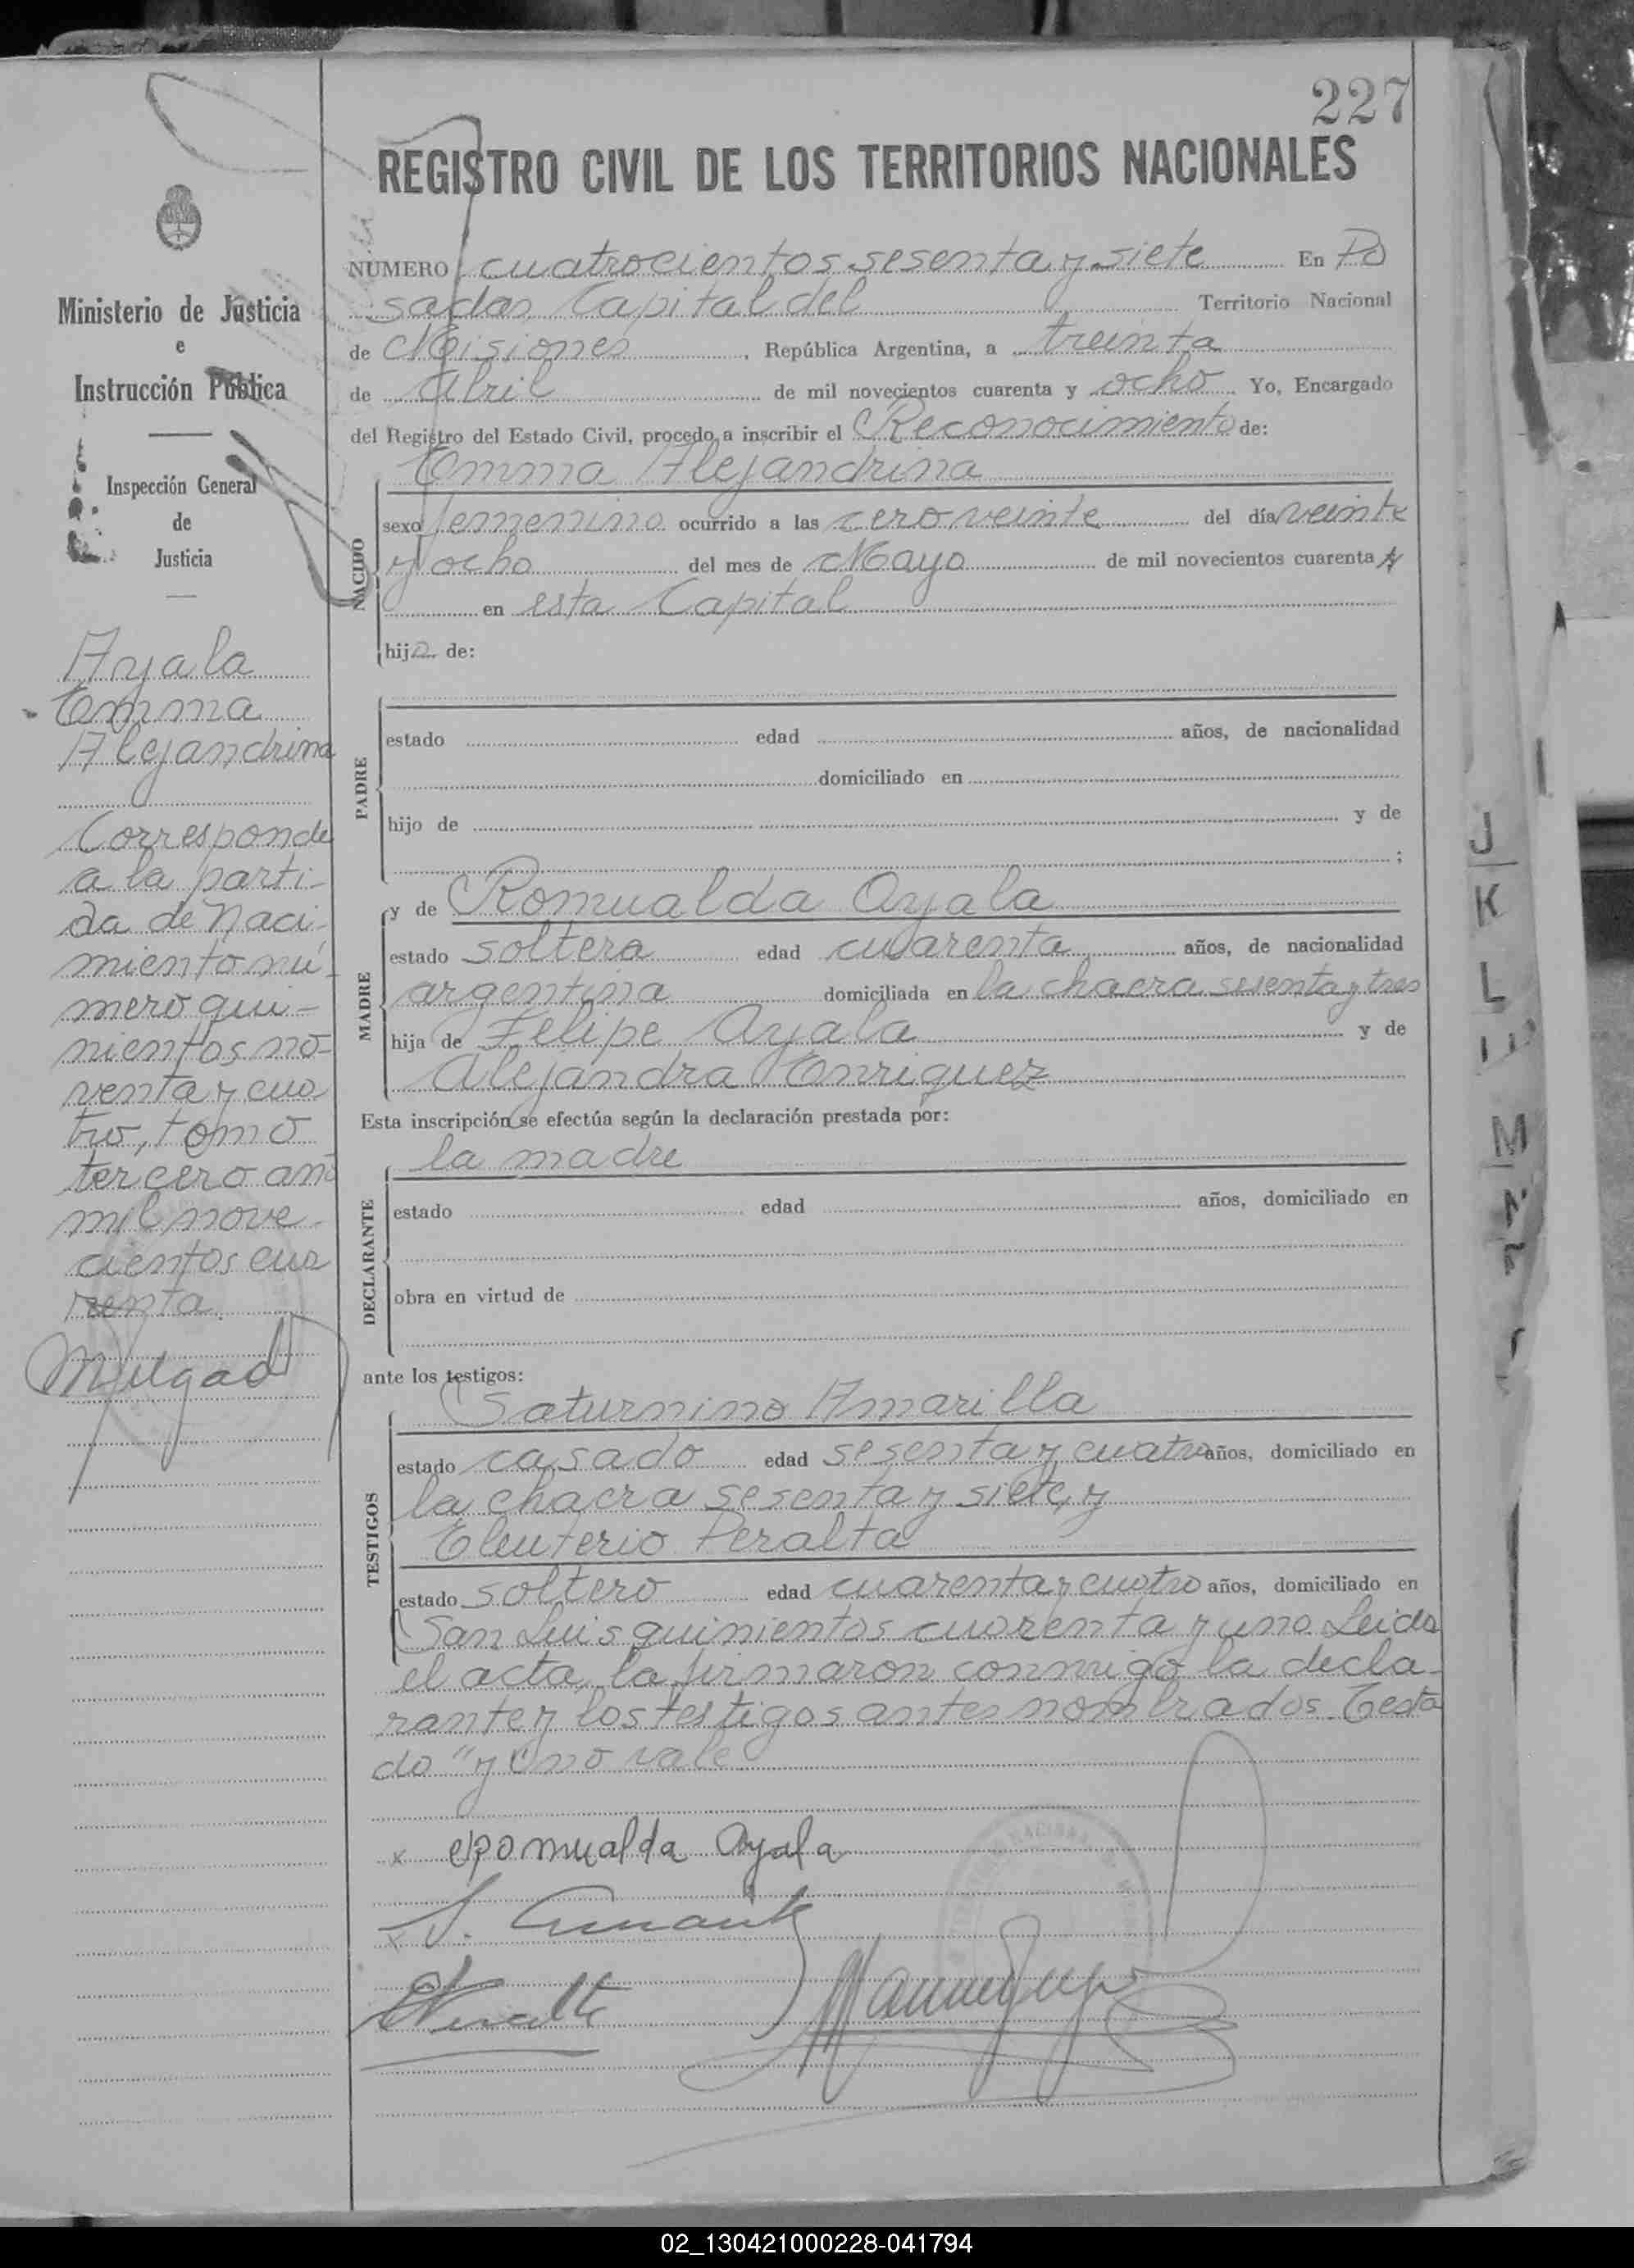 227
REGISTRO CIVIL DE LOS TERRITORIOS NACIONALES
Ministerio de Justicia
e
Instrucción Pública
Inspección General
de
Justicia
Ayala
Emma
Alejandrina
Corresponde
a la parti-
da de Naci-
miento nú-
mero qui-
nientos no-
venta y cua
tro, tomo
tercero año
mil nove-
cientos cua
renta.
NUMERO cuatrocientos sesenta y siete En Po
sadas Capital del Territorio Nacional
de Misiones, República Argentina, a treinta
de Abril de mil novecientos cuarenta y ocho Yo, Encargado
del Registro del Estado Civil, procedo a inscribir el Reconocimiento de:
Emma Alejandrina
NACIDO
sexo femenino ocurrido a las cero veinte del día veinte
y ocho del mes de Mayo de mil novecientos cuarenta y
en esta Capital
hija de:
PADRE
estado edad años, de nacionalidad
domiciliado en
hijo de y de
;
y de Romualda Ayala
MADRE
estado soltera edad cuarenta años, de nacionalidad
argentina domiciliada en la chacra sesenta y tres
hija de Felipe Ayala y de
Alejandra Enriquez
Esta inscripción se efectúa según la declaración prestada por:
la madre
DECLARANTE
estado edad años, domiciliado en
obra en virtud de
ante los testigos:
Saturnino Amarilla
TESTIGOS
estado casado edad sesenta y cuatro años, domiciliado en
la chacra sesenta y siete, y
Eleuterio Peralta
estado soltero edad cuarenta y cuatro años, domiciliado en
San Luis quinientos cuarenta y uno. Leida
el acta, la firmaron conmigo la decla-
rante y los testigos antes nombrados. Testa
do "y" no vale
x Romualda Ayala
J
K
L
M
N
02_130421000228-041794